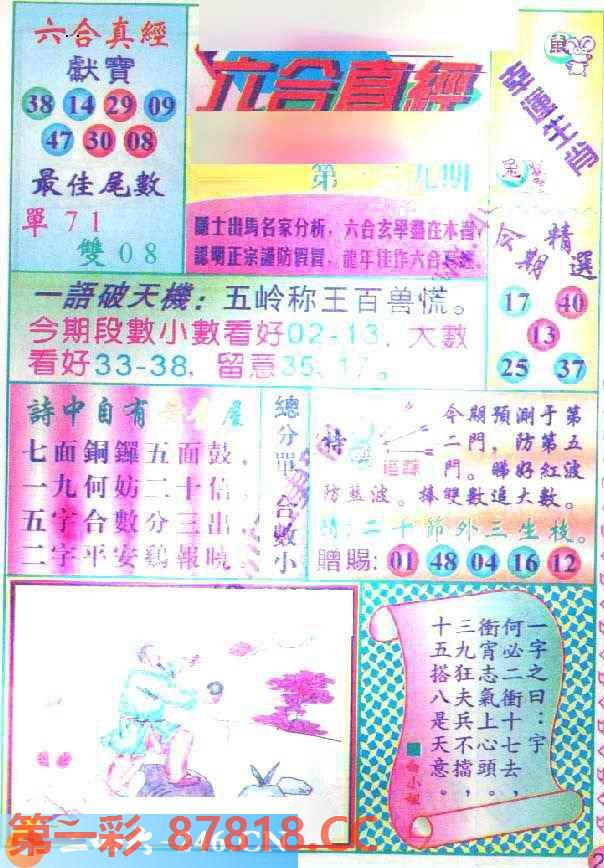 六合真經
獻寶
38 14 29 09
47 30 08
最佳尾數
單 71
雙 08
六合真經
第 九期
隱士出馬名家分析，六合玄學盡在本
認明正宗謹防假冒，龍年佳作六合真經
鼠
幸運生肖
兔
今期精選
17 40
13
25 37
一語破天機：五岭称王百兽慌。
今期段數小數看好02-13，大數
看好33-38，留意35、17。
詩中自有
七面銅鑼五面鼓，
一九何妨二十倍，
五字合數分三出，
二字平安鷄報曉。
總分單
合數小
特
追踪
今期預測于第
二門，防第五
門。睇好紅波
防藍波。捧雙數追大數。
詩：二十節外三生枝。
贈賜：01 48 04 16 12
一字之曰：宇
何必二衝十七去，
衝宵志氣上心頭。
三九狂夫兵不擋，
十五搭八是天意。
白小姐
第一彩 87818.CC